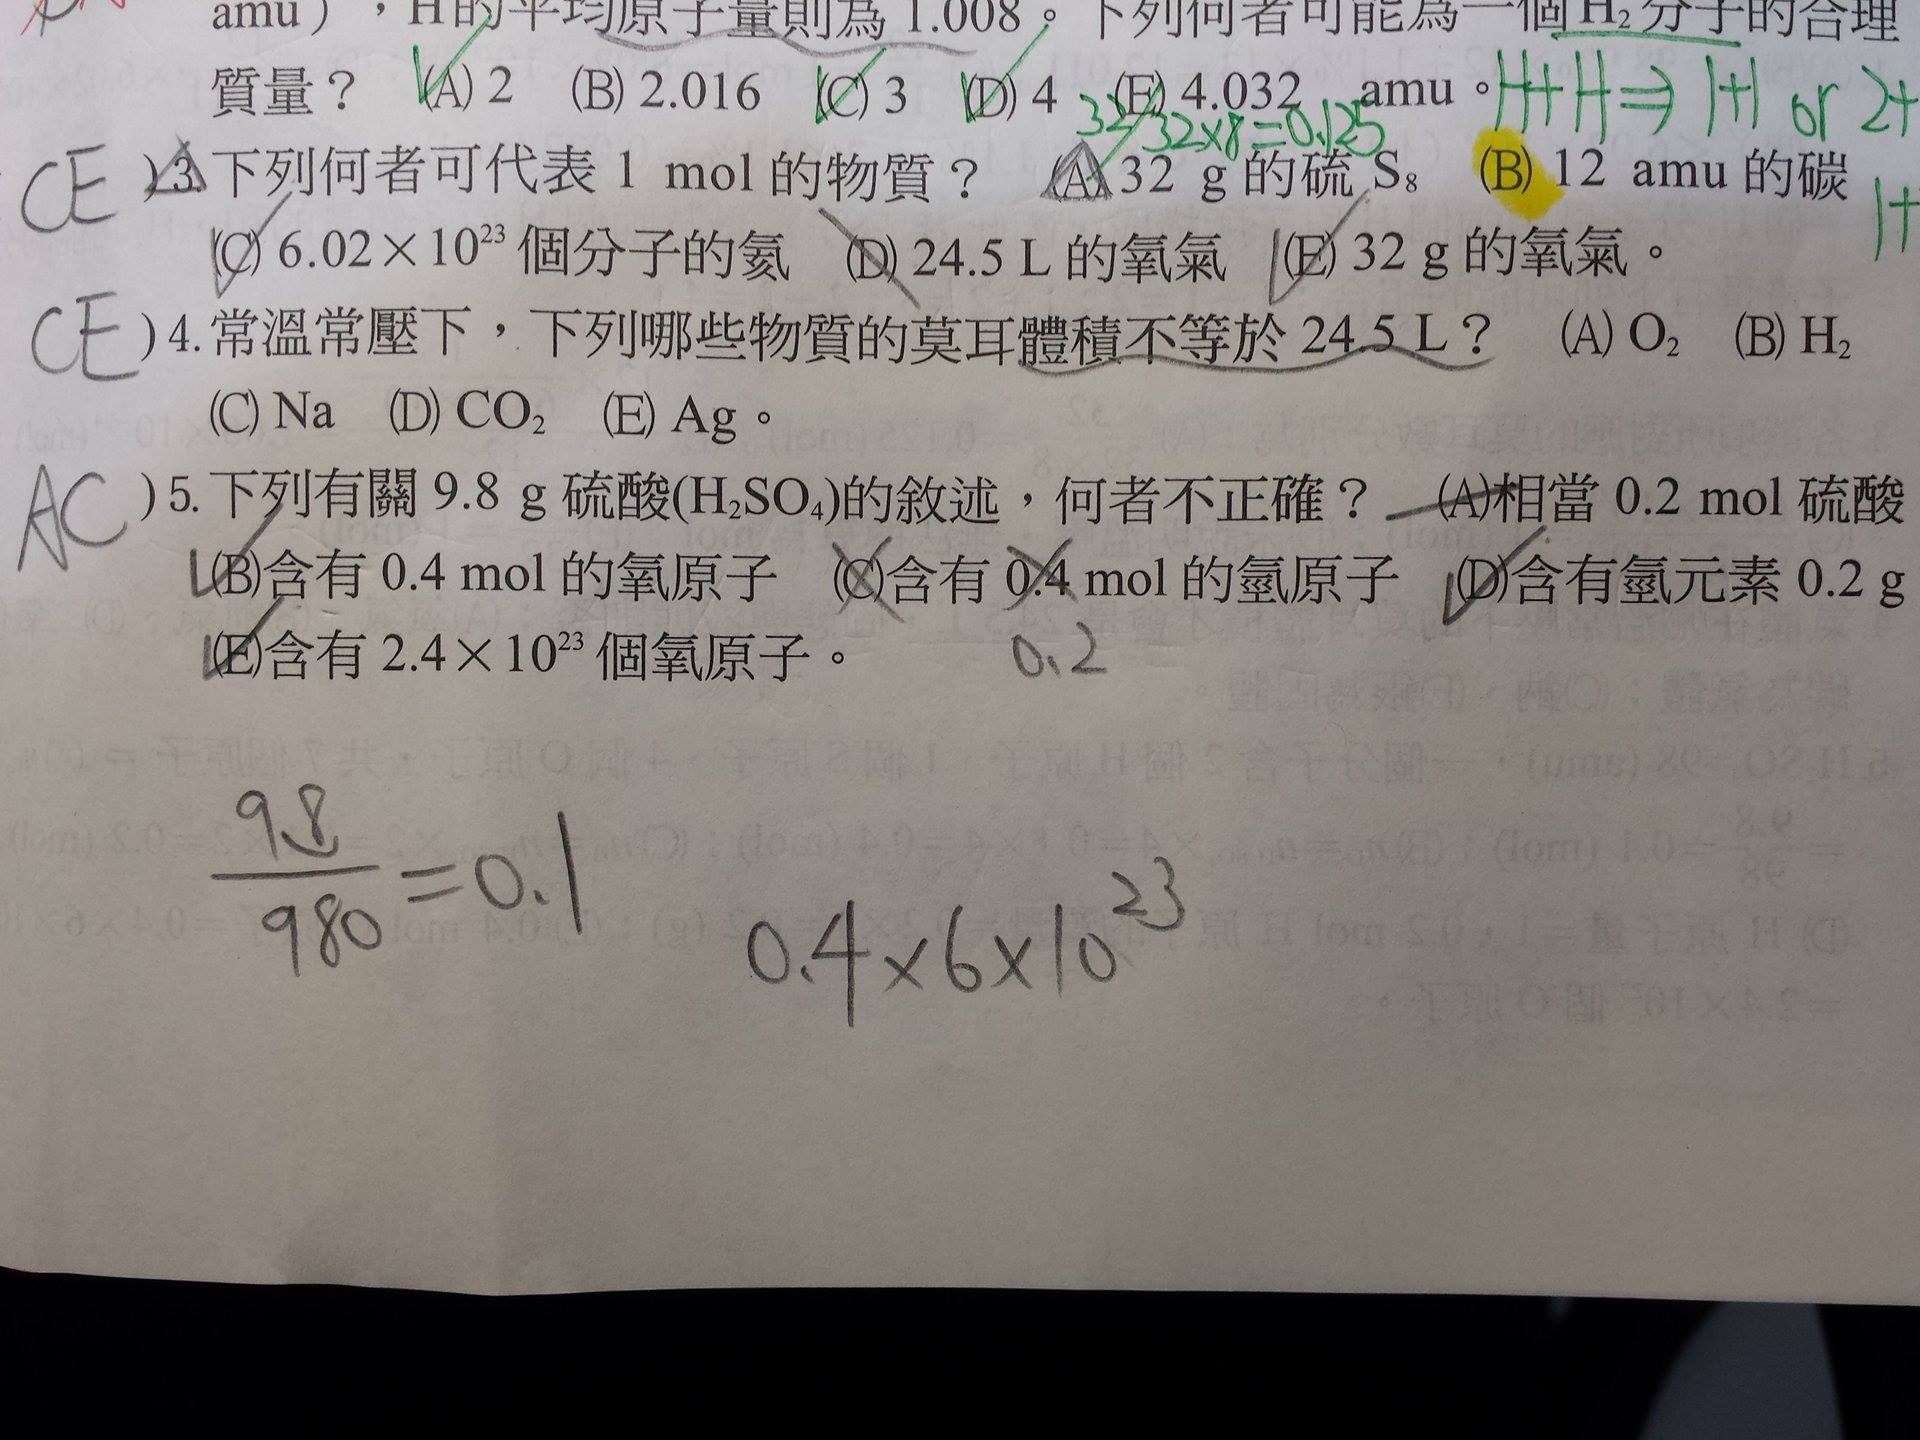 amu），H的平均原子量則為 1.008。下列何者可能為一個 H₂ 分子的合理
質量？ (A) 2 (B) 2.016 (C) 3 (D) 4 (E) 4.032 amu。 H+H⇒1+1 or 2+
32/32×8=0.125
CE )3. 下列何者可代表 1 mol 的物質？ (A) 32 g 的硫 S₈ (B) 12 amu 的碳
1+
(C) 6.02×10²³ 個分子的氦 (D) 24.5 L 的氧氣 (E) 32 g 的氧氣。
CE )4. 常溫常壓下，下列哪些物質的莫耳體積不等於 24.5 L？ (A) O₂ (B) H₂
(C) Na (D) CO₂ (E) Ag。
AC )5. 下列有關 9.8 g 硫酸(H₂SO₄)的敘述，何者不正確？ (A)相當 0.2 mol 硫酸
(B)含有 0.4 mol 的氧原子 (C)含有 0.4 mol 的氫原子 (D)含有氫元素 0.2 g
(E)含有 2.4×10²³ 個氧原子。 0.2
98
980 =0.1
0.4×6×10²³